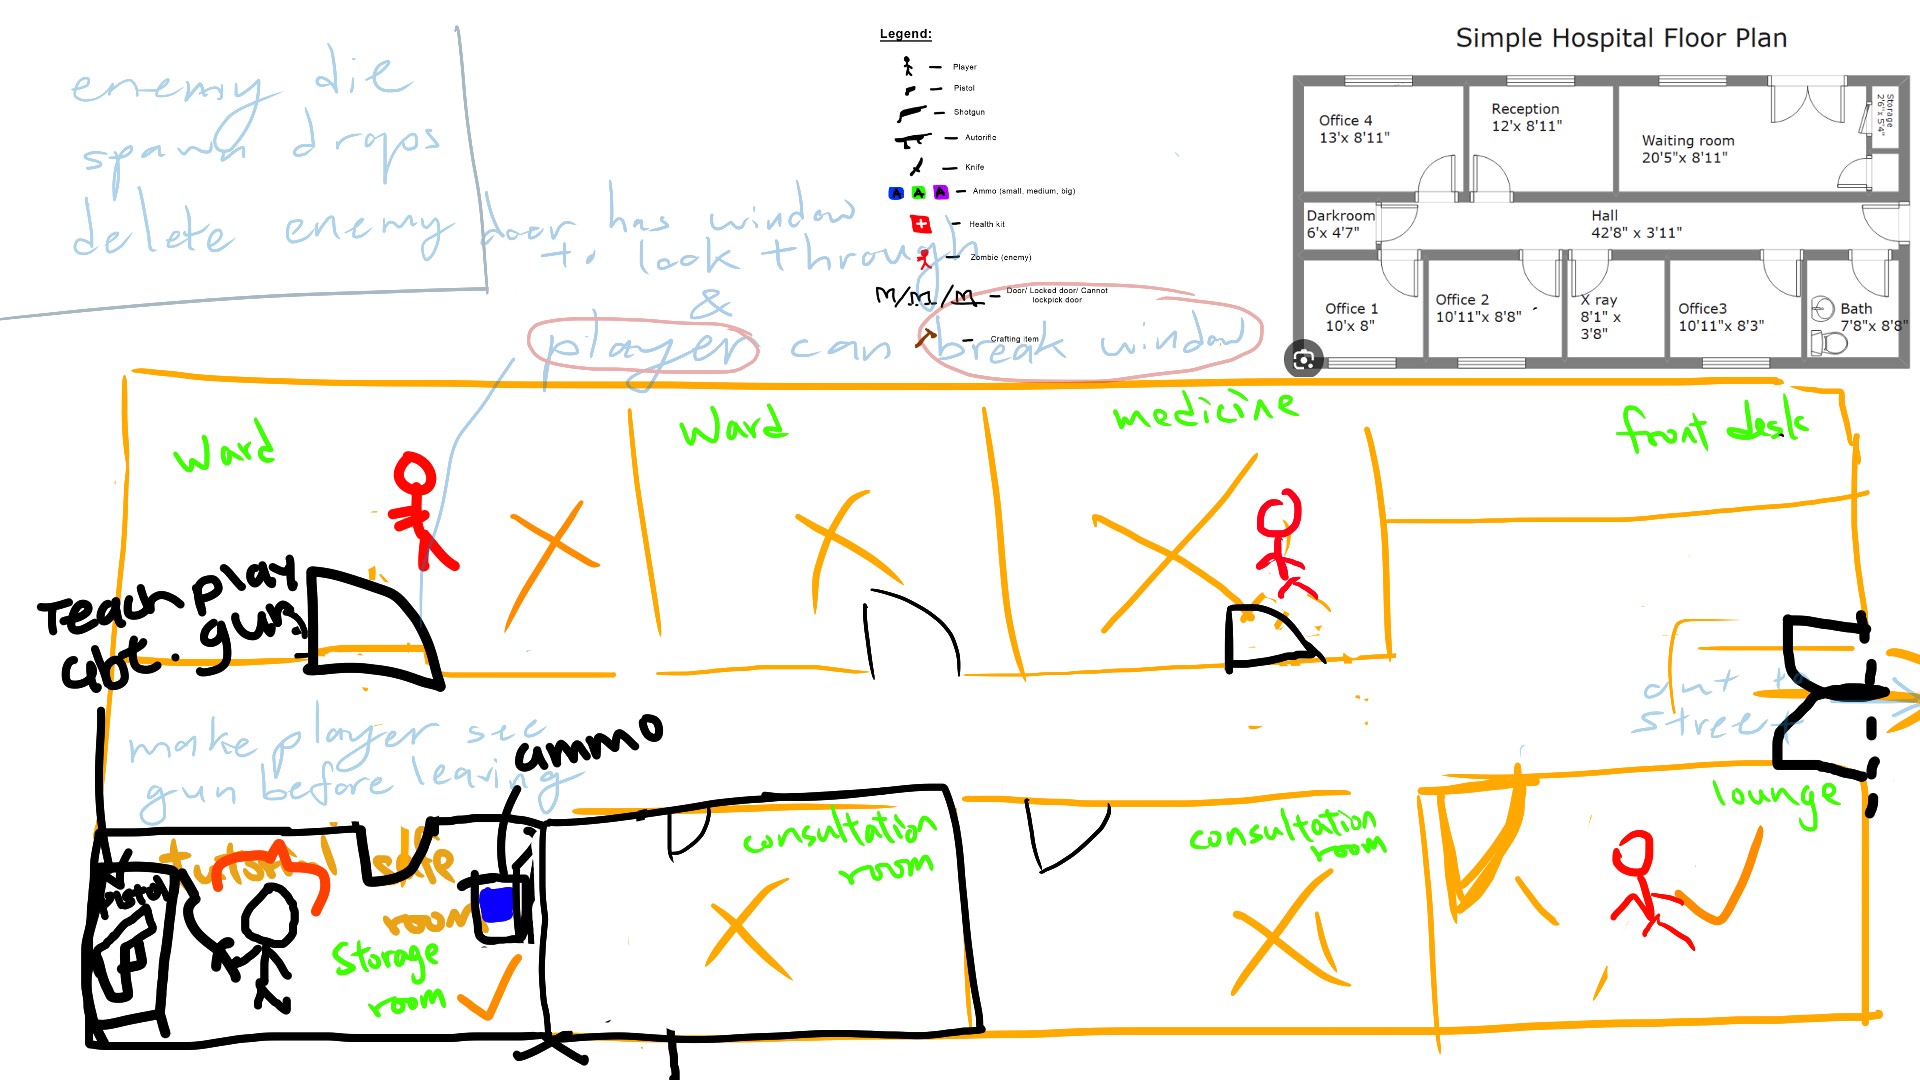 enemy die
spawn drops
delete enemy
door has window
to look through
&
player can break window
Legend:
Player
Pistol
Shotgun
Autorifle
Knife
A A A Ammo (small, medium, big)
Health kit
Zombie (enemy)
Door/ Locked door/ Cannot
lockpick door
Crafting item
Simple Hospital Floor Plan
Office 4
13'x 8'11"
Reception
12'x 8'11"
Waiting room
20'5"x 8'11"
Storage
2'6"x 5'4"
Darkroom
6'x 4'7"
Hall
42'8" x 3'11"
Office 1
10'x 8"
Office 2
10'11"x 8'8"
X ray
8'1" x
3'8"
Office3
10'11"x 8'3"
Bath
7'8"x 8'8"
Ward
Ward
medicine
front desk
Teach play
abt. gun
make player see
gun before leaving
ammo
out to
street
tutorial safe
room
pistol
Storage
room
consultation
room
consultation
room
lounge